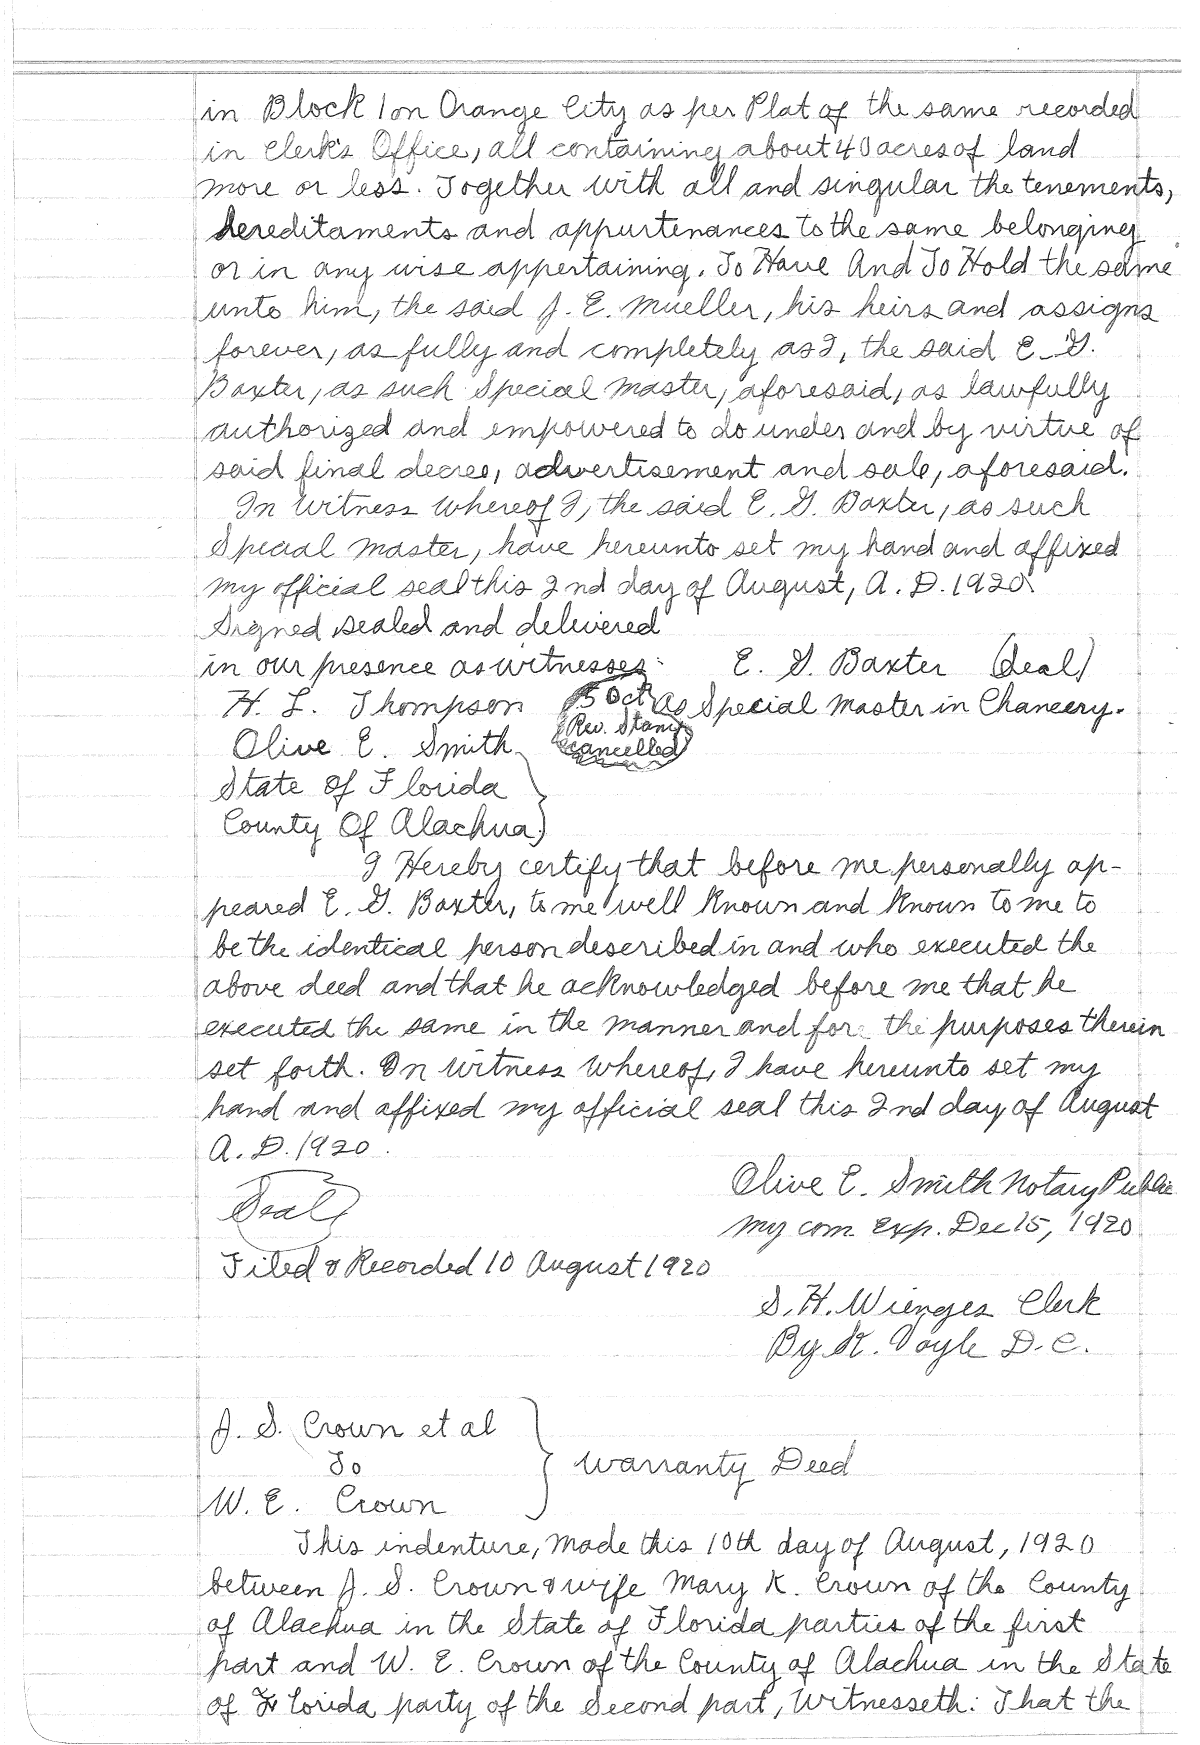 in Block 1 on Orange City as per Plat of the same recorded
in Clerk's Office, all containing about 40 acres of land
more or less. Together with all and singular the tenements,
hereditaments and appurtenances to the same belonging
or in any wise appertaining. To Have And To Hold the same
unto him, the said J. E. Mueller, his heirs and assigns
forever, as fully and completely as I, the said E. G.
Baxter, as such Special Master, aforesaid, as lawfully
authorized and empowered to do under and by virtue of
said final decree, advertisement and sale, aforesaid.
In Witness Whereof I, the said E. G. Baxter, as such
Special Master, have hereunto set my hand and affixed
my official seal this 2nd day of August, A. D. 1920.
Signed sealed and delivered
in our presence as witnesses: E. G. Baxter (Seal)
H. L. Thompson 50ct as Special Master in Chancery.
Rev. Stamp
Olive E. Smith cancelled
State of Florida
County Of Alachua
I Hereby certify that before me personally ap-
peared E. G. Baxter, to me well known and known to me to
be the identical person described in and who executed the
above deed and that he acknowledged before me that he
executed the same in the manner and for the purposes therein
set forth. In Witness Whereof, I have hereunto set my
hand and affixed my official seal this 2nd day of August
A. D. 1920.
Olive E. Smith Notary Public
Seal
My com. Exp. Dec 15, 1920
Filed & Recorded 10 August 1920
S. H. Wienges Clerk
By K. Voyle D. C.
J. S. Crown et al
To
Warranty Deed
W. E. Crown
This indenture, Made this 10th day of August, 1920
between J. S. Crown & wife Mary K. Crown of the County
of Alachua in the State of Florida parties of the first
part and W. E. Crown of the County of Alachua in the State
of Florida party of the Second part, Witnesseth: That the